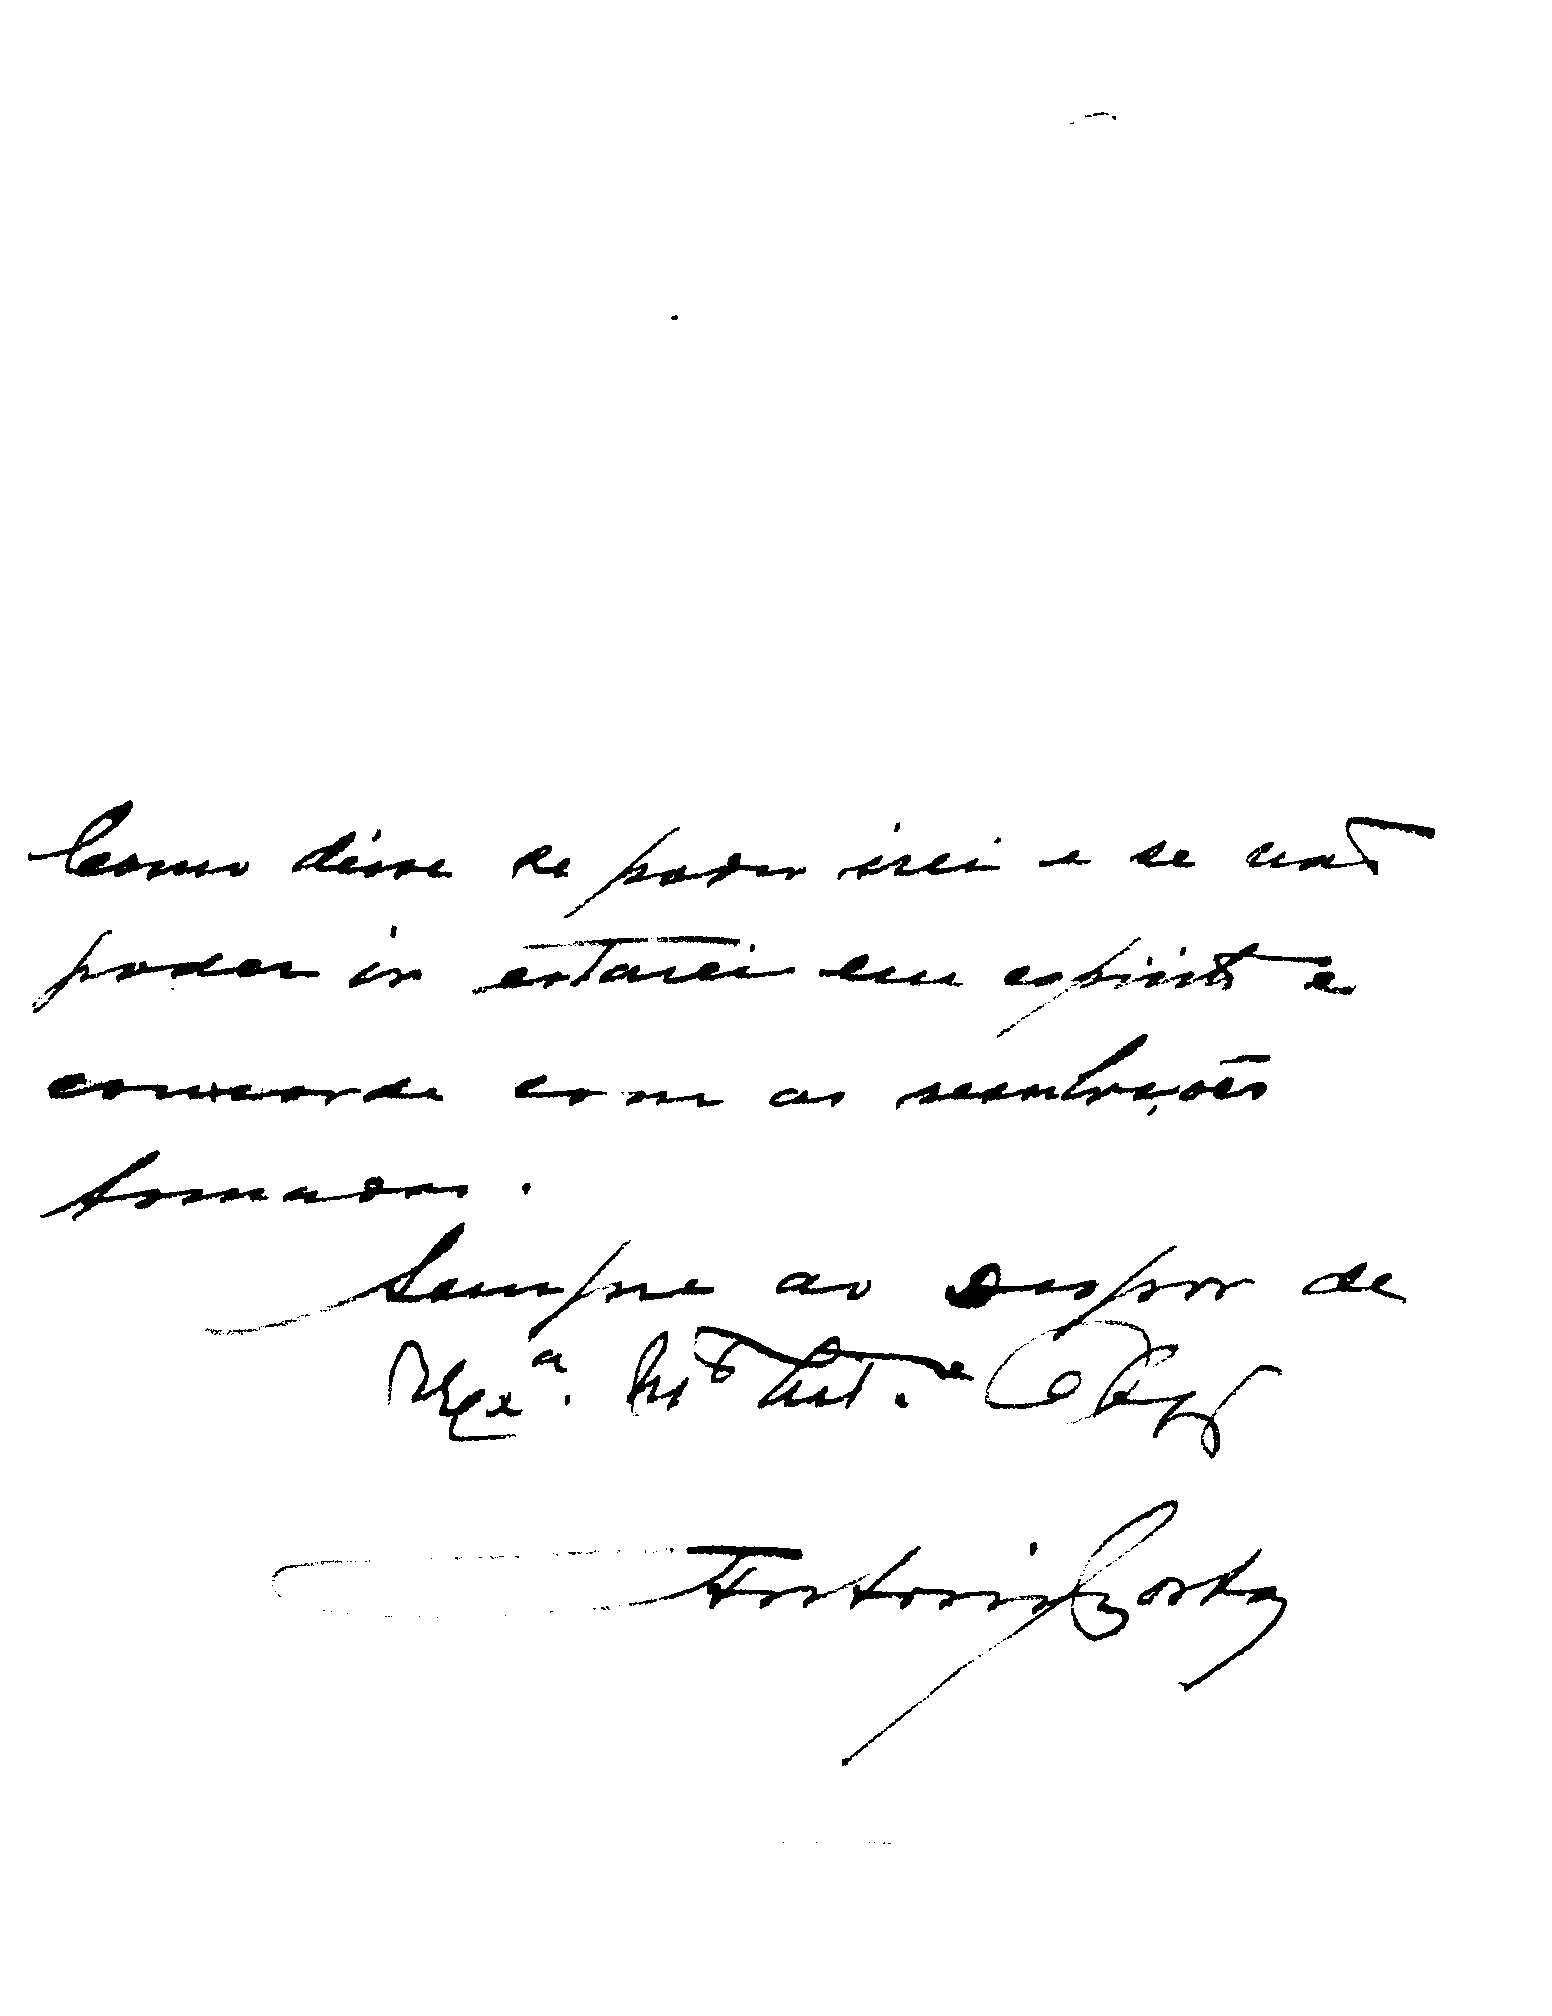 Como disse se poder irei e se não
poder ir estarei em espirito e
concordo com as resoluções
tomadas.
Sempre ao dispor de
V. Exª. Mtº Att.
Antonio Costa